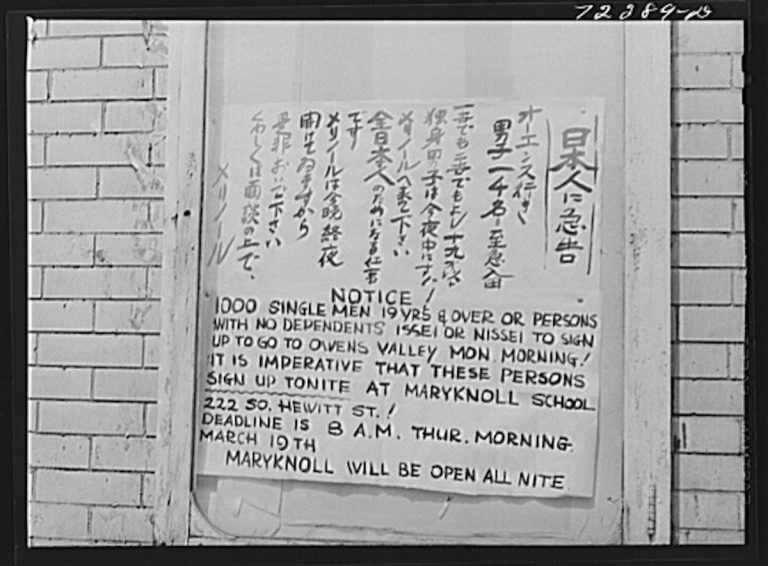 72389-D
日本人に急告
オーエンス行き
男子一千名至急入用
一世でも二世でもよし十九才以上
独身男子は今夜中に
メリノールへ来て下さい
全日本人のためになる仕事
です
メリノールは今晩終夜
開けて居ますから
是非おいで下さい
くわしくは面談の上で、
メリノール
NOTICE!
1000 SINGLE MEN 19 YRS & OVER OR PERSONS
WITH NO DEPENDENTS ISSEI OR NISSEI TO SIGN
UP TO GO TO OWENS VALLEY MON. MORNING!
IT IS IMPERATIVE THAT THESE PERSONS
SIGN UP TONITE AT MARYKNOLL SCHOOL
222 SO. HEWITT ST.!
DEADLINE IS 8 A.M. THUR. MORNING
MARCH 19TH
MARYKNOLL WILL BE OPEN ALL NITE